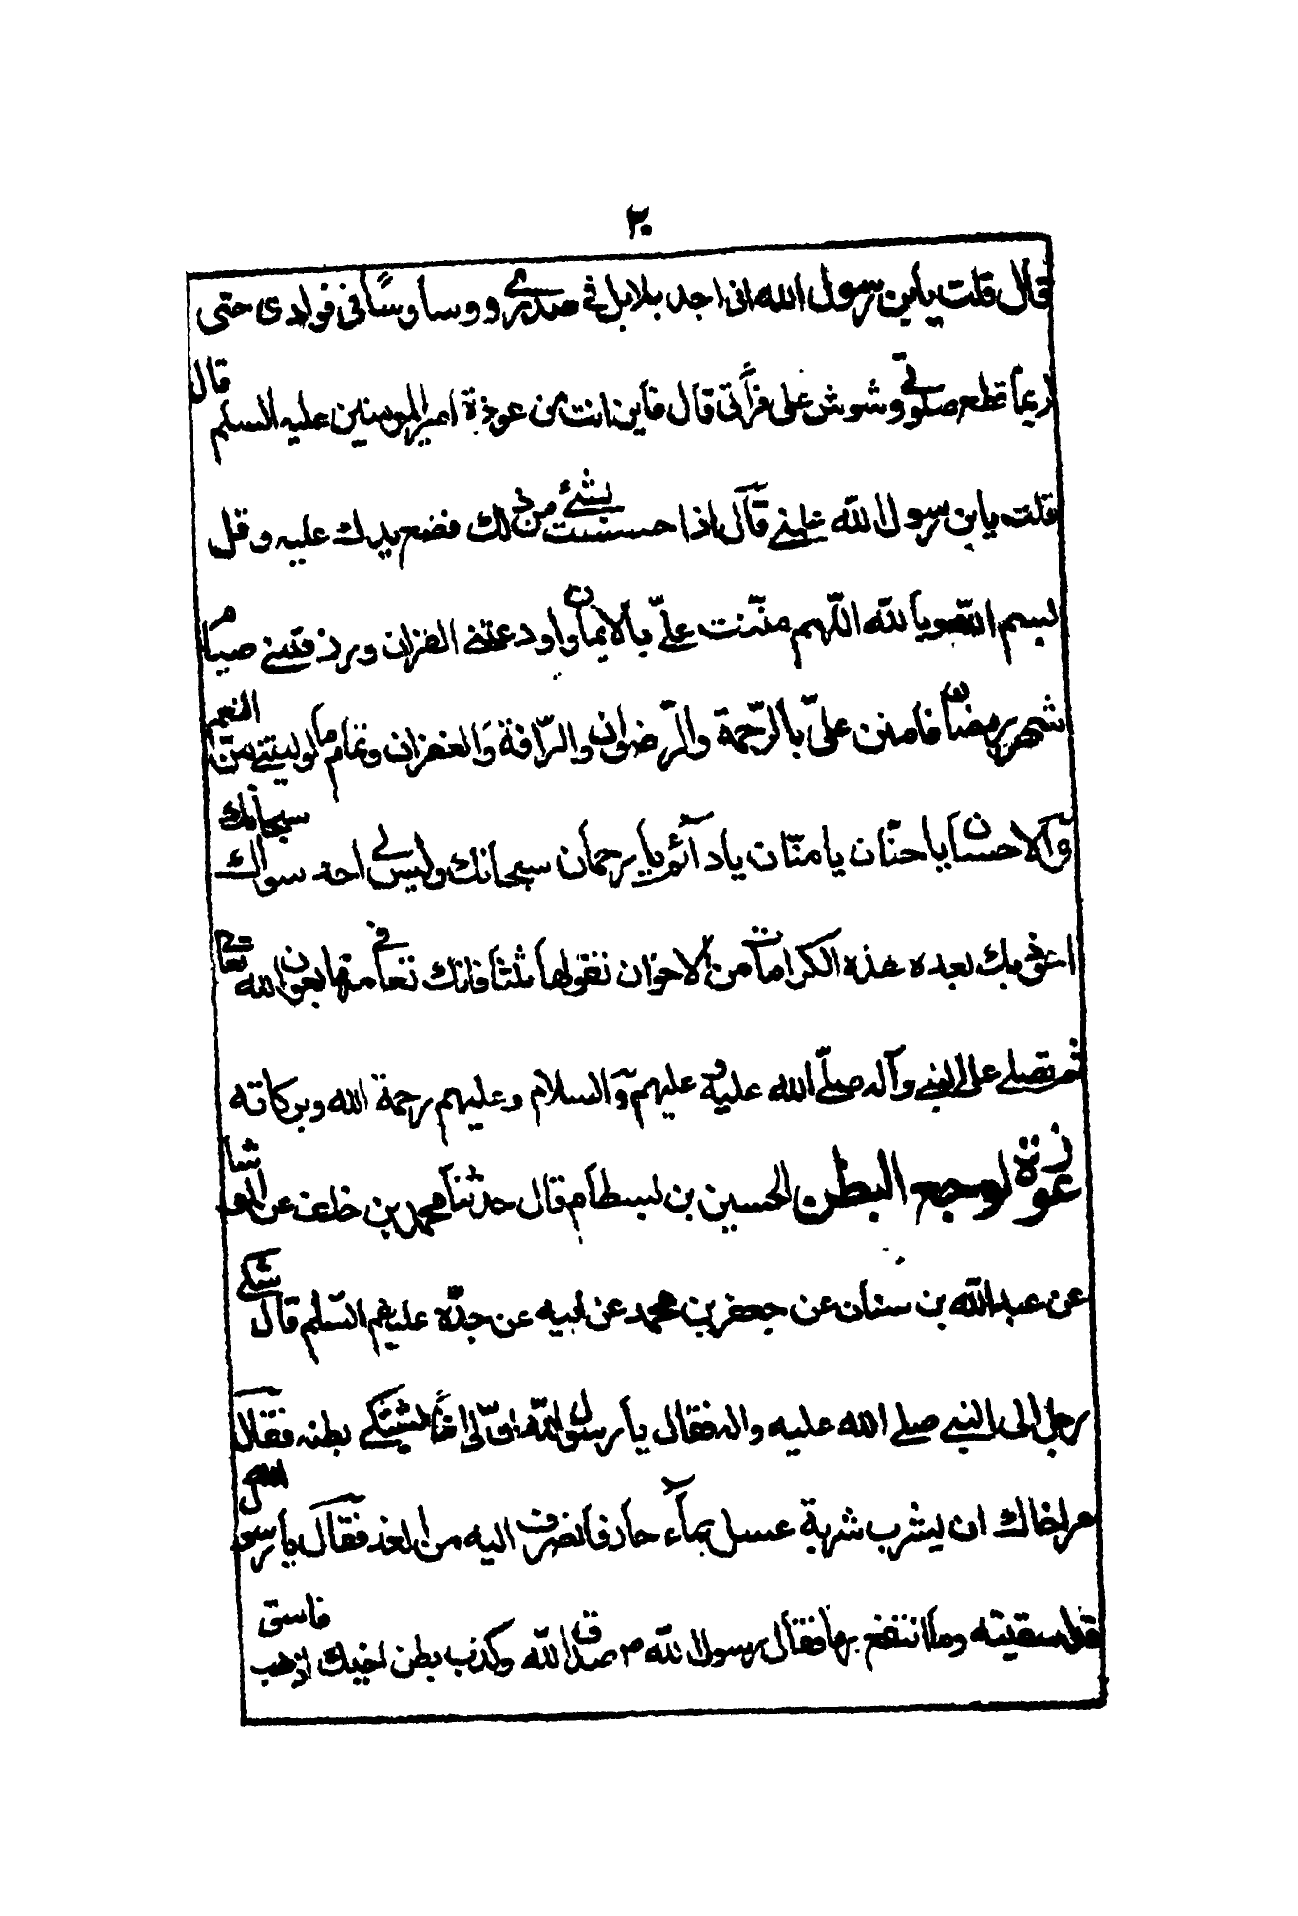 ٣٠
قال قلت يا بن رسول الله انى اجد بلابل فى صدرى و وساوسًا فى فوادى حتى
لربما قطع صلوتى و شوش على قرآنى قال فاين انت من عوذة امير المومنين عليه السلم قال
قلت يا بن رسول الله علمنى قال اذا احسست بشئ من ذلك فضع يدك عليه و قل
بسم الله و يا لله اللهم مننت علىّ بالايمان و اودعتنى القران و رزقتنى صيام
شهر رمضان فامنن علىّ بالرّحمة والرّضوان والرّافة والغفران و تمام ما اوليتنى من النعم
والاحسان يا حنّان يا منّان يا دآئم يا رحمان سبحانك وليس لى احد سواك سبحانك
اعوذ بك بعد هذه الكرامات من الاحزان تقولها ثلثا فانك تعافى منها بعون الله تعالى
ثم تصلى على النبى وآله صلّى الله عليه و عليهم والسلام وعليهم رحمة الله وبركاته
عوذة لوجع البطن الحسين بن بسطام قال حدثنا محمد بن خلف عن الوشا
عن عبد الله بن سنان عن جعفر بن محمد عن ابيه عن جدّه عليهم السّلم قال شكى
رجل الى النبى صلى الله عليه واله فقال يا رسول الله انّ لى اخًا يشتكى بطنه فقال
مر اخاك ان يشرب شربة عسل بمآء حار فانصرف اليه من الغد فقال يا رسول الله
قد اسقيته وما انتفع بها فقال رسول الله ص صدق الله وكذب بطن اخيك اذهب فاسق